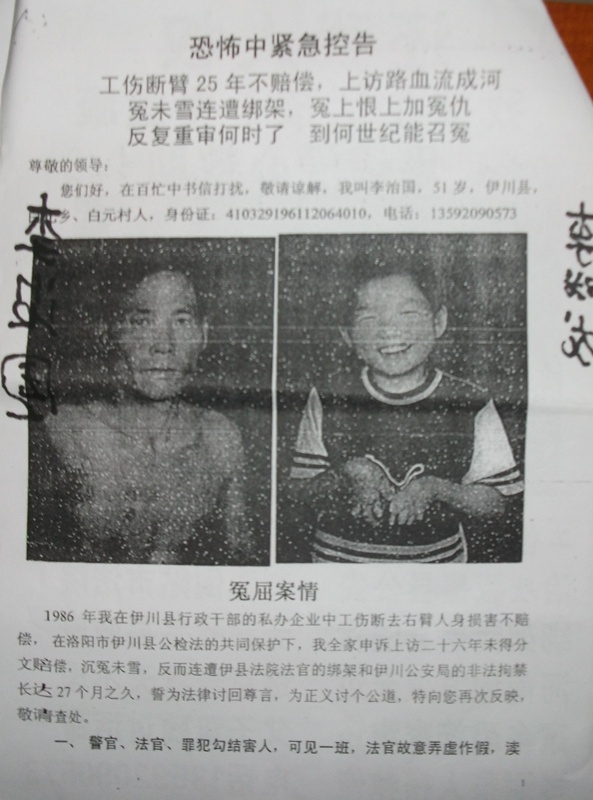 恐怖中紧急控告
工伤断臂 25 年不赔偿，上访路血流成河
冤未雪连遭绑架，冤上恨上加冤仇
反复重审何时了 到何世纪能召冤
尊敬的领导：
您们好，在百忙中书信打扰，敬请谅解，我叫李治国，51 岁，伊川县，
乡、白元村人，身份证：410329196112064010，电话：13592090573
冤屈案情
1986 年我在伊川县行政干部的私办企业中工伤断去右臂人身损害不赔
偿，在洛阳市伊川县公检法的共同保护下，我全家申诉上访二十六年未得分
文赔偿，沉冤未雪，反而连遭伊县法院法官的绑架和伊川公安局的非法拘禁
长达 27 个月之久，誓为法律讨回尊言，为正义讨个公道，特向您再次反映，
敬请查处。
一、 警官、法官、罪犯勾结害人，可见一班，法官故意弄虚作假，渎
1